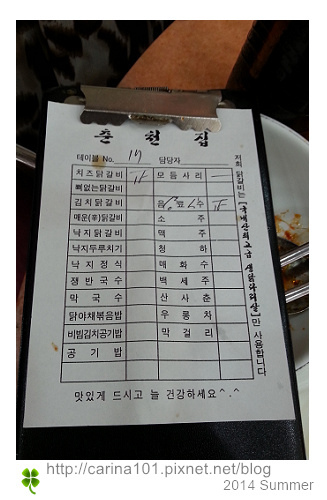 춘천집
테이블 No. 17 담당자
치즈닭갈비 모듬사리
뼈없는닭갈비
김치닭갈비 음료수
매운(辛)닭갈비 소주
낙지닭갈비 맥주
낙지두루치기 청하
낙지정식 매화수
쟁반국수 백세주
막국수 산사춘
닭야채볶음밥 우롱차
비빔김치공기밥 막걸리
공기밥
저희 닭갈비는 [국내산최고급 생닭다리살]만 사용합니다
맛있게 드시고 늘 건강하세요^.^
http://carina101.pixnet.net/blog
2014 Summer